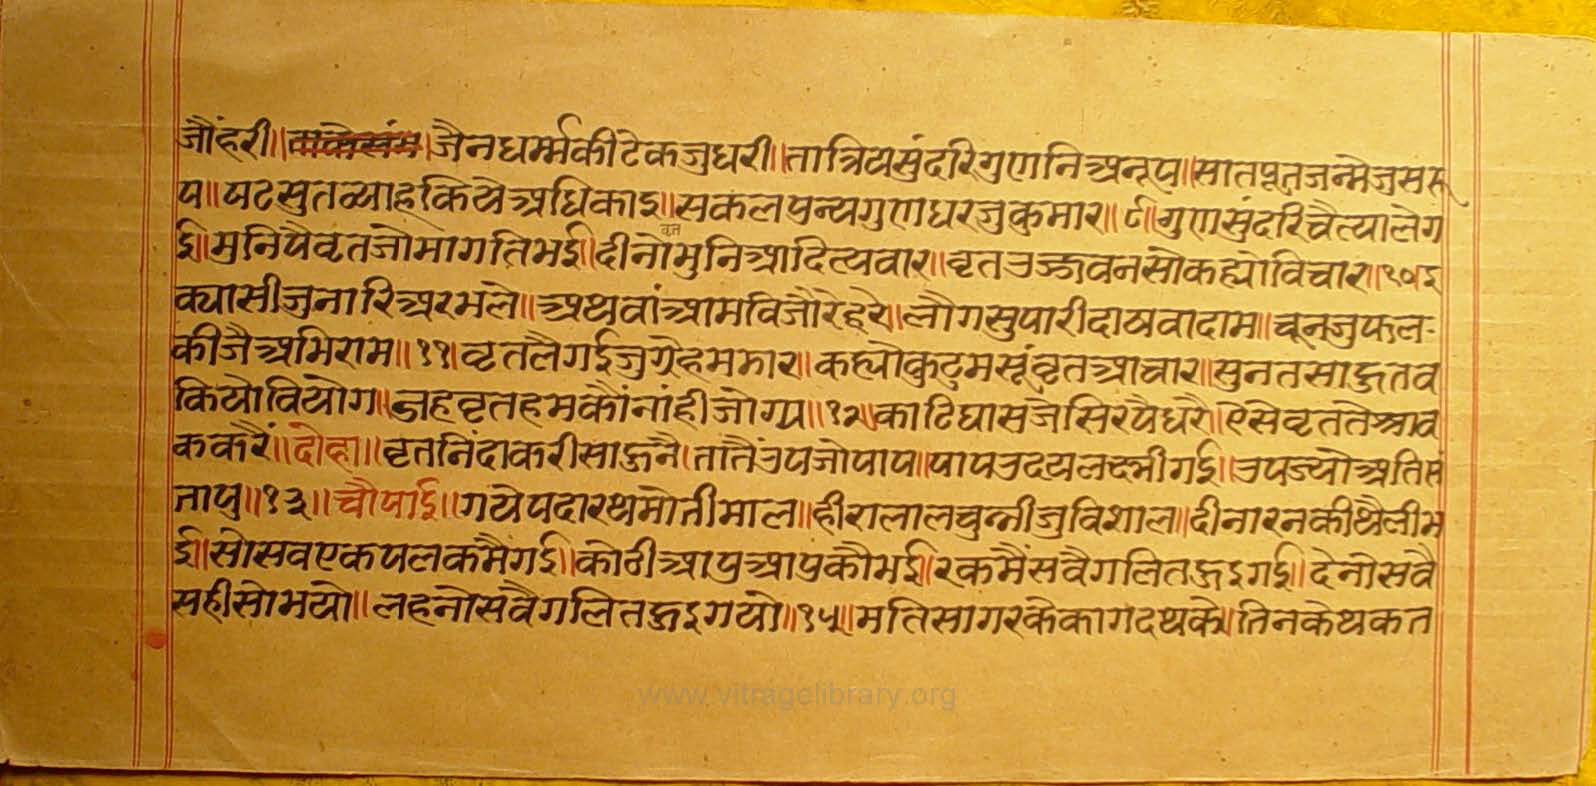 जौंहरी॥जैनधर्म्मकीटेकजुधरी॥तात्रियसुंदरिगुणनिअनूप॥सातपूतजन्मेजुसरू
प॥षटसुतव्याहकियेअधिकाइ॥सकलपुन्यगुणधरजुकुमार॥९॥गुणसुंदरिचैत्यालेग
ई॥मुनिपैवृतजोमागतिभई॥दीनोमुनिआदित्यवार॥वृतउज्जवनसोकह्योविचार॥१०॥इ
वृत
क्यासीजुनारिअरभले॥अथवांआमविजौरेहरे॥लौगसुपारीदाषवादाम॥चूनजुफल-
कीजैअभिराम॥११॥वृतलैगईजुग्रेहमझार॥कह्योकुटमसूंवृतआचार॥सुनतसाहुतव
कियोवियोग॥जहवृतहमकौंनांहीजोग्य॥१२॥काटिघासजैसिरपैधरै॥ऐसेवृततेश्राव
ककरैं॥दोहा॥वृतनिंदाकरीसाहुनै।तातैंउपजोपाप॥पापउदयलक्ष्मीगई॥उपज्योअतिसं
ताप॥१३॥चौपाई॥गयेपदारथमोतीमाल॥हीरालालचुन्नीजुविशाल॥दीनारनकीथैलीभ
ई॥सोसवएकपलकमैंगई॥कोठीआपुआपुकौभई॥रकमैंसवैगलितहुइगई॥देनोसवै
सहीसोभयो॥लहनोसवैगलितहुइगयो॥१५॥मतिसागरकेकागदथके॥तिनकेथकत
www.vitragelibrary.org